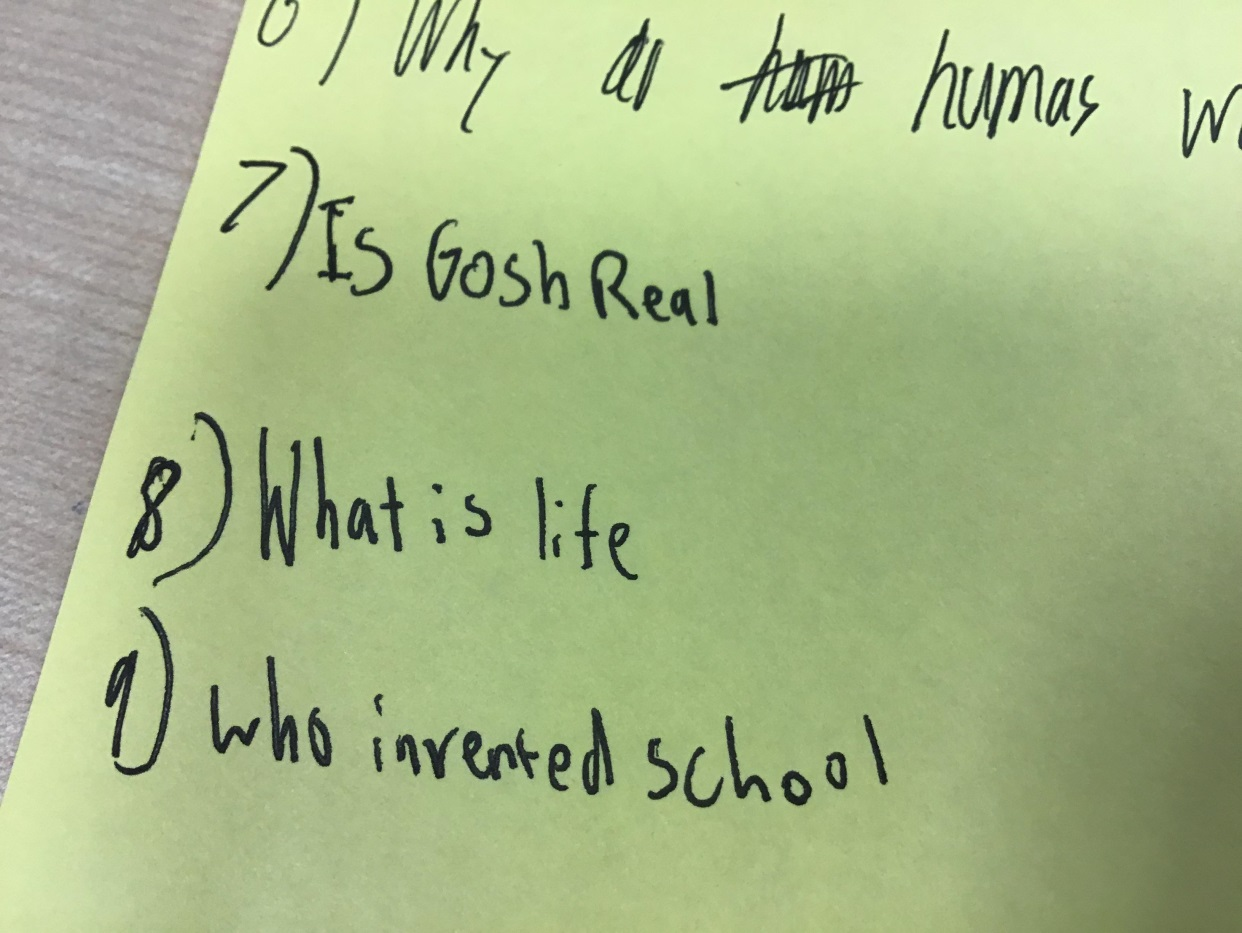 6) Why humas
7) Is Gosh Real
8) What is life
9) who invented school